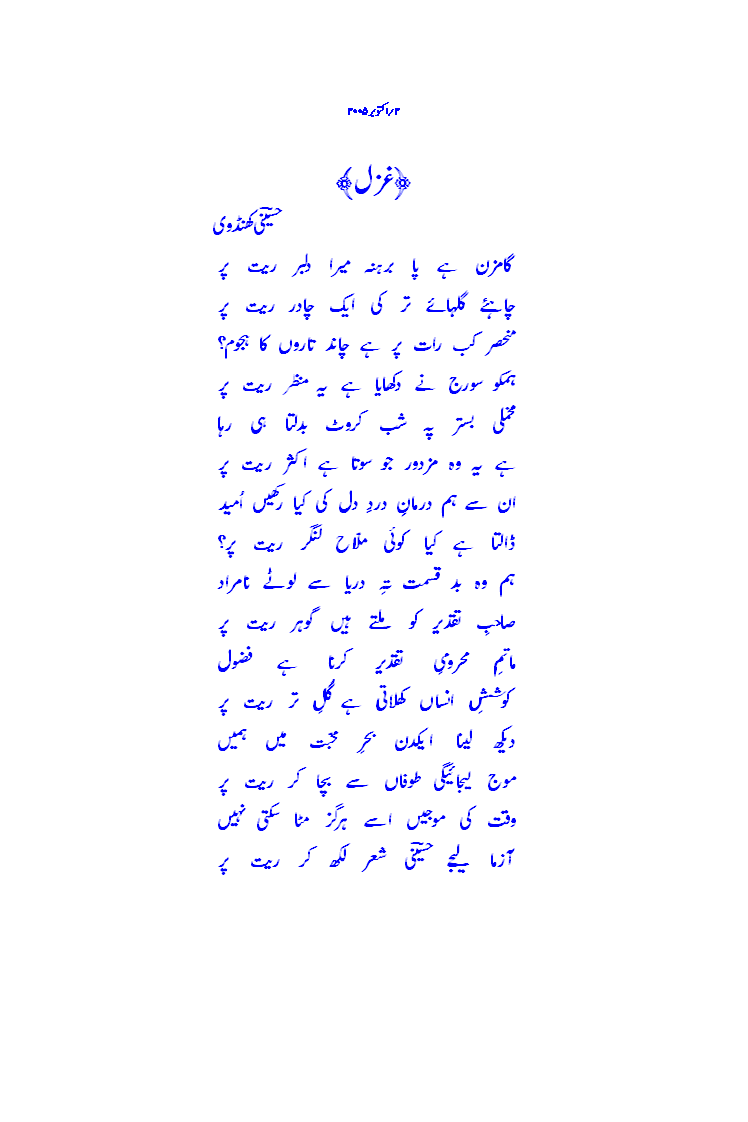 ۳/اکتوبر ۲۰۰۵
﴿غزل﴾
حسینیؔ کھنڈوی
گامزن ہے پا برہنہ میرا دلبر ریت پر
چاہئے گلہائے تر کی ایک چادر ریت پر
منحصر کب رات پر ہے چاند تاروں کا ہجوم؟
ہمکو سورج نے دکھایا ہے یہ منظر ریت پر
مخملی بستر پہ شب کروٹ بدلتا ہی رہا
ہے یہ وہ مزدور جو سوتا ہے اکثر ریت پر
ان سے ہم درمانِ دردِ دل کی کیا رکھیں اُمید
ڈالتا ہے کیا کوئی ملّاح لنگر ریت پر؟
ہم وہ بد قسمت تہِ دریا سے لوٹے نامراد
صاحبِ تقدیر کو ملتے ہیں گوہر ریت پر
ماتمِ محرومیِ تقدیر کرنا ہے فضول
کوششِ انساں کھلاتی ہے گُلِ تر ریت پر
دیکھ لینا ایکدن بحرِ محبّت میں ہمیں
موج لیجائیگی طوفاں سے بچا کر ریت پر
وقت کی موجیں اسے ہرگز مٹا سکتی نہیں
آزما لیجے حسینیؔ شعر لکھ کر ریت پر